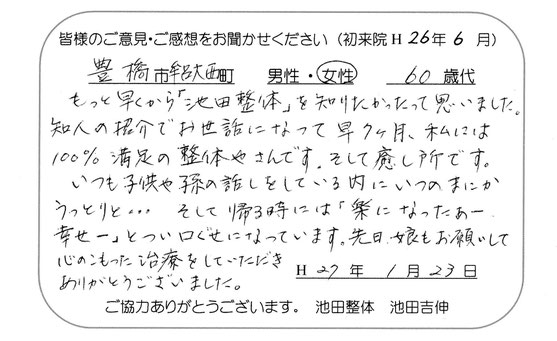 皆様のご意見・ご感想をお聞かせください（初来院 H 26年 6 月）
豊橋市牟呂大西町 男性・女性 60 歳代
もっと早くから「池田整体」を知りたかったって思いました。
知人の紹介でお世話になって早7ヶ月、私には
100% 満足の整体やさんです。そして癒し所です。
いつも子供や孫の話しをしている内にいつのまにか
うっとりと… そして帰る時には「楽になったあー
幸せー」とつい口ぐせになっています。先日、娘もお願いして
心のこもった治療をしていただき
ありがとうございました。
H 27 年 1 月 23 日
ご協力ありがとうございます。 池田整体 池田吉伸